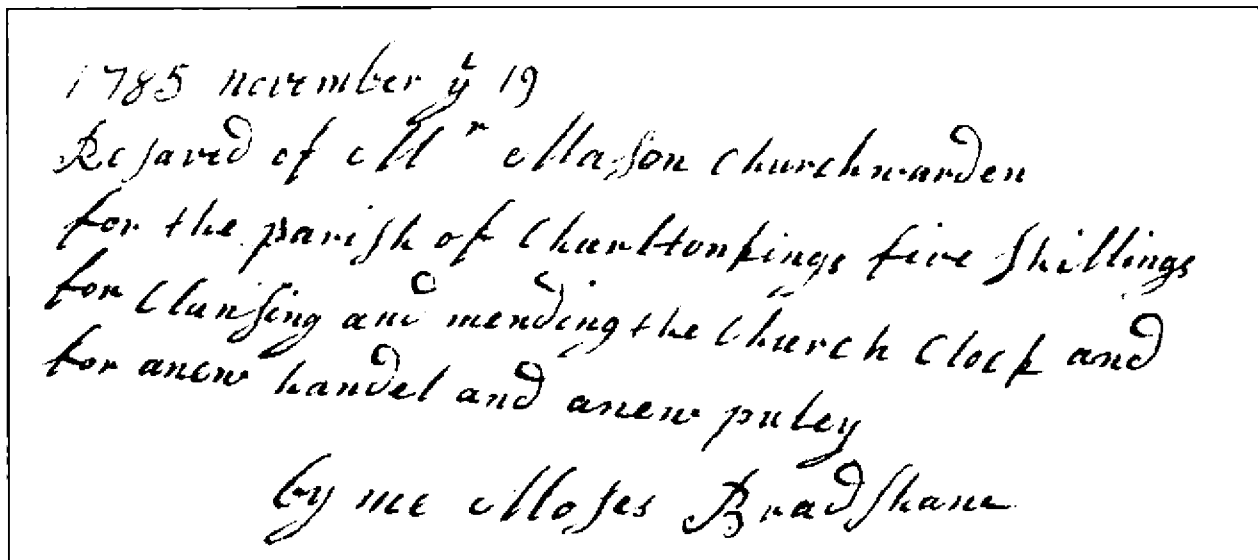 1785 november yᵉ 19
Resaved of Mʳ Mason Churchwarden
for the parish of Charltonkings five shillings
for Clansing and mending the Church Clock and
for anew handel and anew puley
by me Moses Bradshane